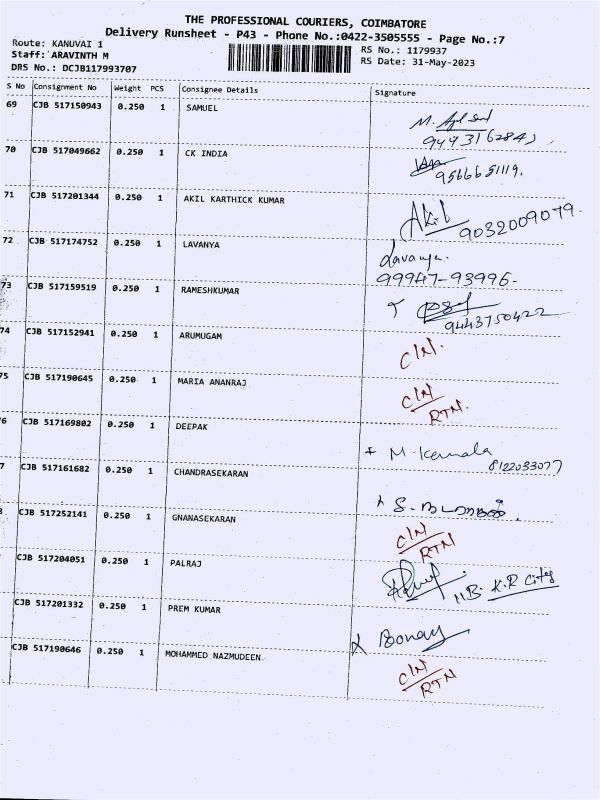 THE PROFESSIONAL COURIERS, COIMBATORE
Delivery Runsheet - P43 - Phone No.:0422-3505555 - Page No.:7
Route: KANUVAI 1
Staff: ARAVINTH M
DRS No.: DCJB117993707
RS No.: 1179937
RS Date: 31-May-2023
S No Consignment No Weight PCS Consignee Details Signature
69 CJB 517150943 0.250 1 SAMUEL
9443162843
70 CJB 517049662 0.250 1 CK INDIA
9566651119.
71 CJB 517201344 0.250 1 AKIL KARTHICK KUMAR Akil
9032009079.
72 CJB 517174752 0.250 1 LAVANYA Lavanya.
99947-93996-
73 CJB 517159519 0.250 1 RAMESHKUMAR
9443750422
74 CJB 517152941 0.250 1 ARUMUGAM C/N.
75 CJB 517190645 0.250 1 MARIA ANANRAJ C/N
RTN.
6 CJB 517169802 0.250 1 DEEPAK M. Kamala
8122033077
7 CJB 517161682 0.250 1 CHANDRASEKARAN
CJB 517252141 0.250 1 GNANASEKARAN C/N
RTN
CJB 517204051 0.250 1 PALRAJ
K.R City
CJB 517201332 0.250 1 PREM KUMAR
CJB 517190646 0.250 1 MOHAMMED NAZMUDEEN C/N
RTN